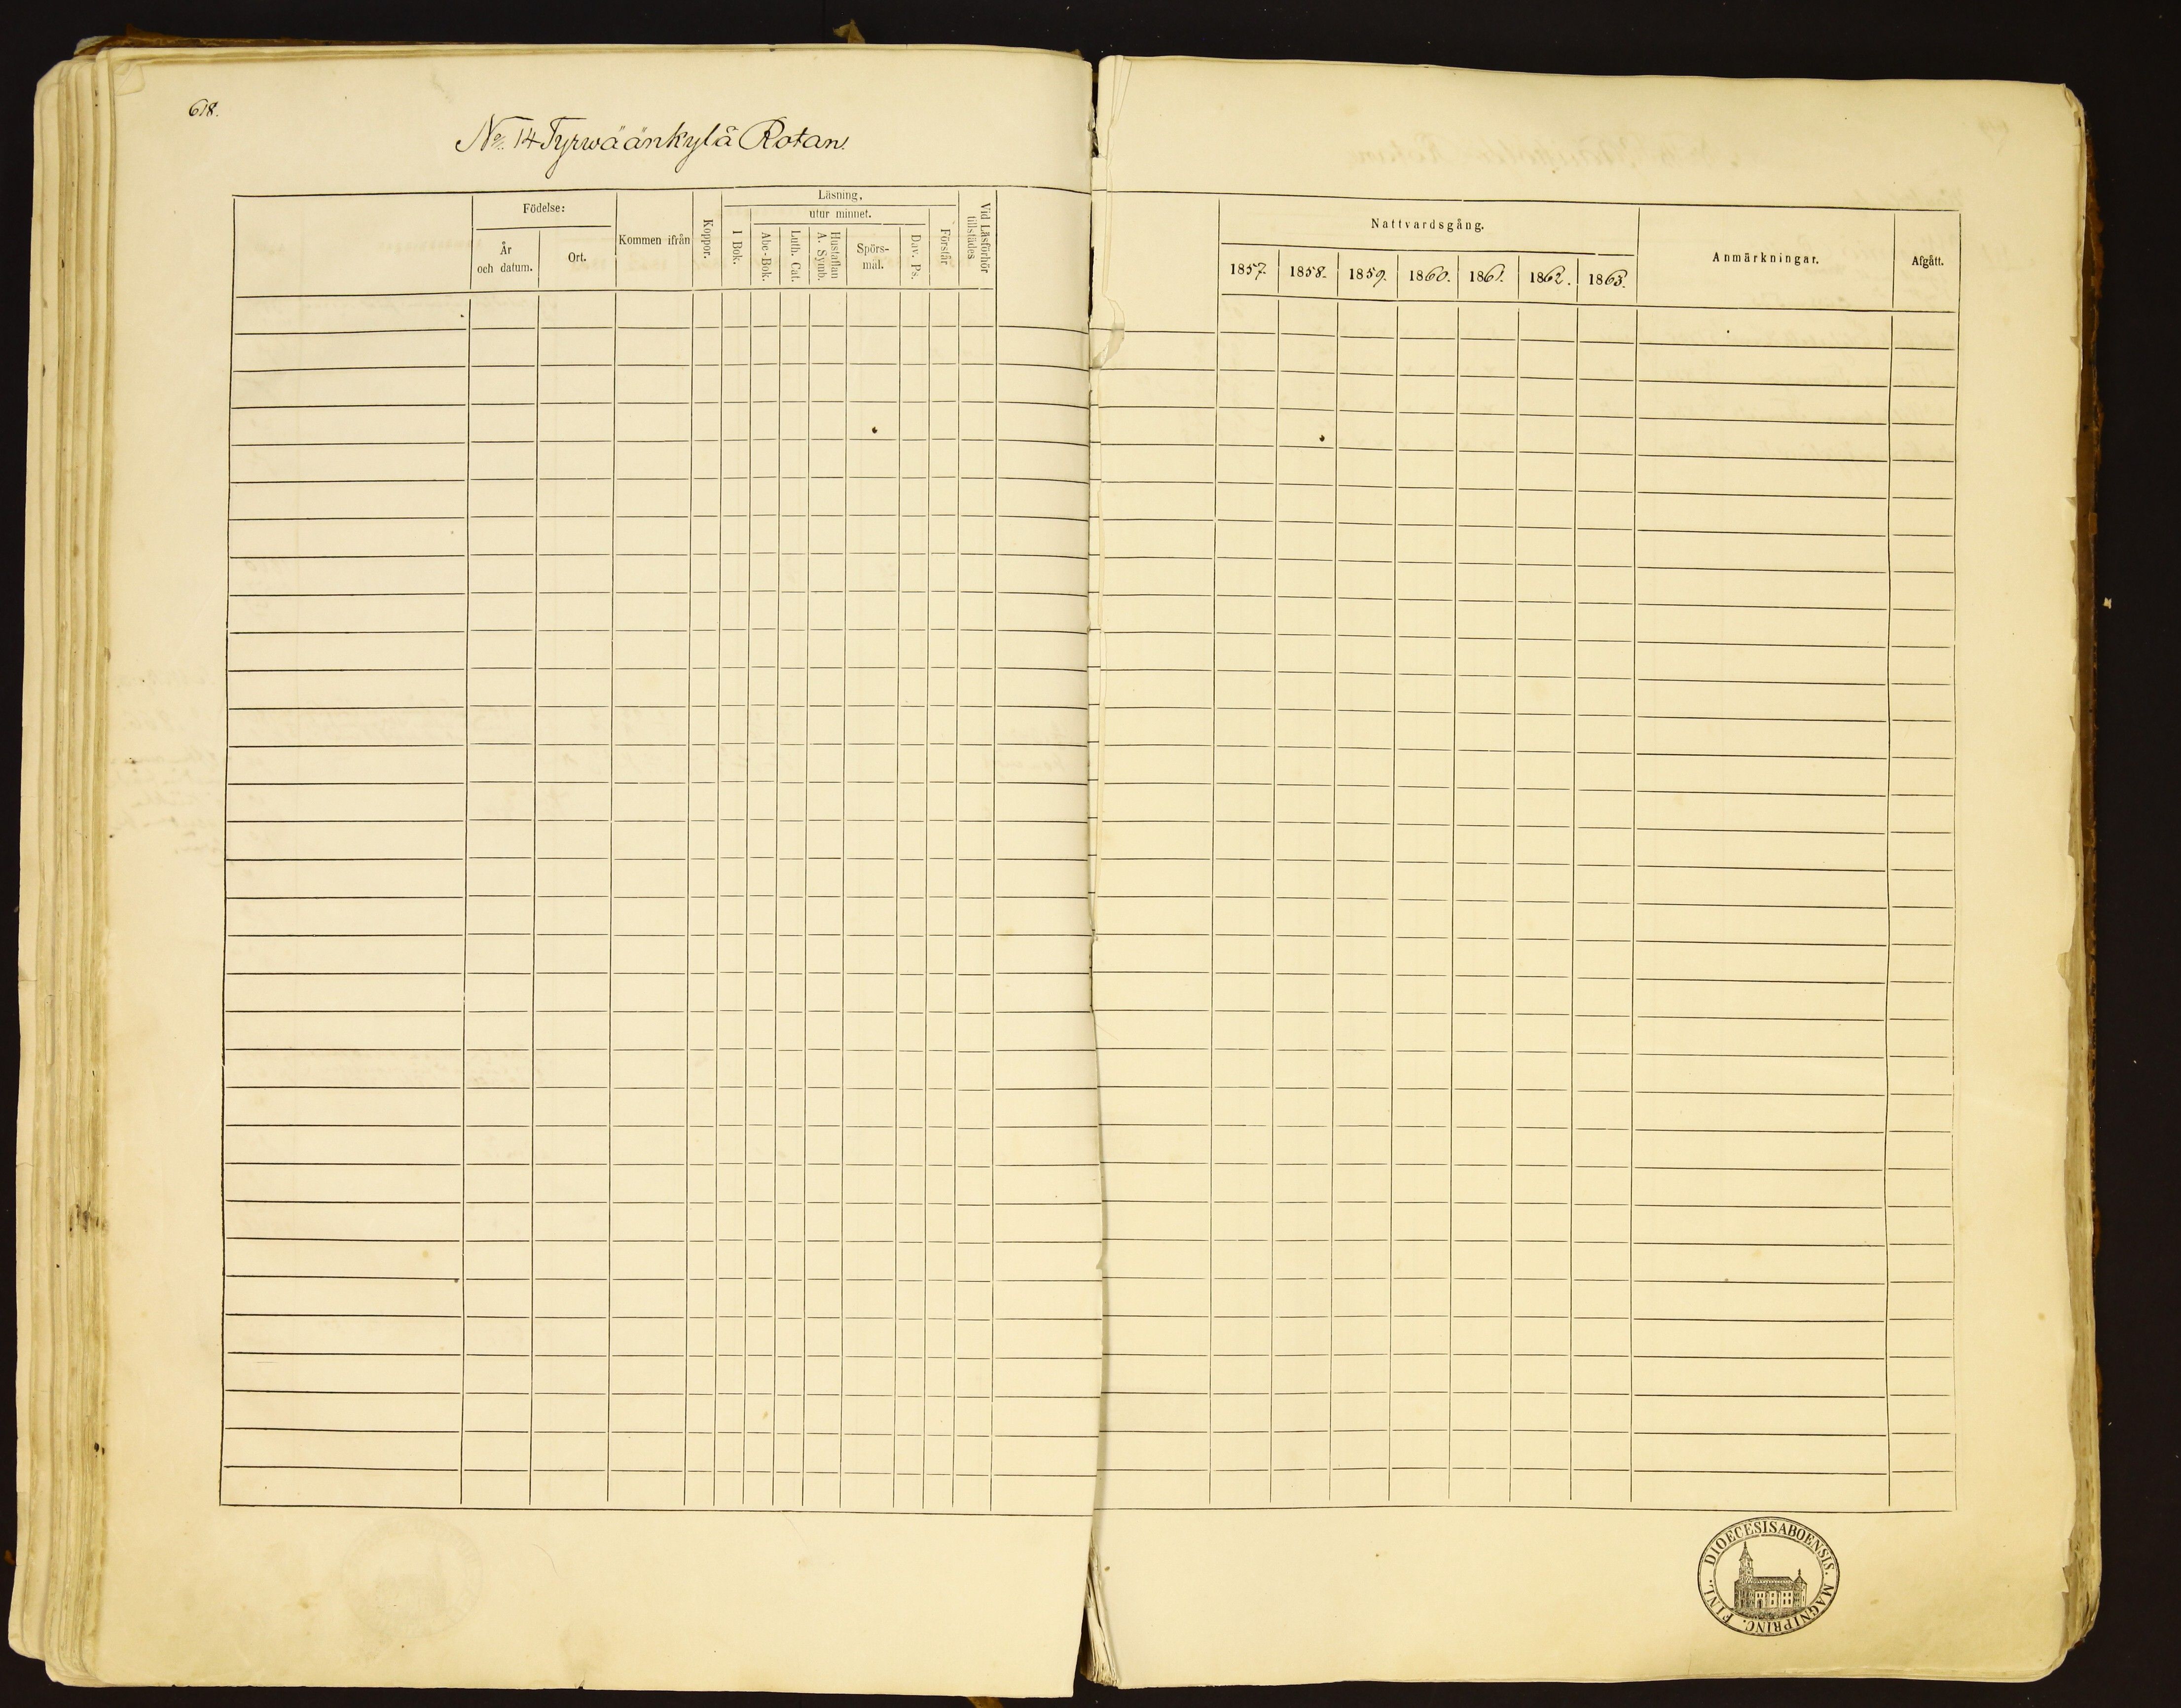 618.
No. 14 Tyrwäänkylä Rotan.
Födelse:
År
och datum.
Ort.
Kommen ifrån
Koppor.
Läsning,
I Bok.
utur minnet.
Abc-Bok.
Luth. Cat.
Hustaflan
A. Symb.
Spörs-
mål.
Dav. Ps.
Förstår
Vid Läsförhör
tillstädes
Nattvardsgång.
1857. 1858. 1859. 1860. 1861. 1862. 1863.
Anmärkningar.
Afgått.
DIOECESIS ABOENSIS. MAGNI PRINC. FINL.